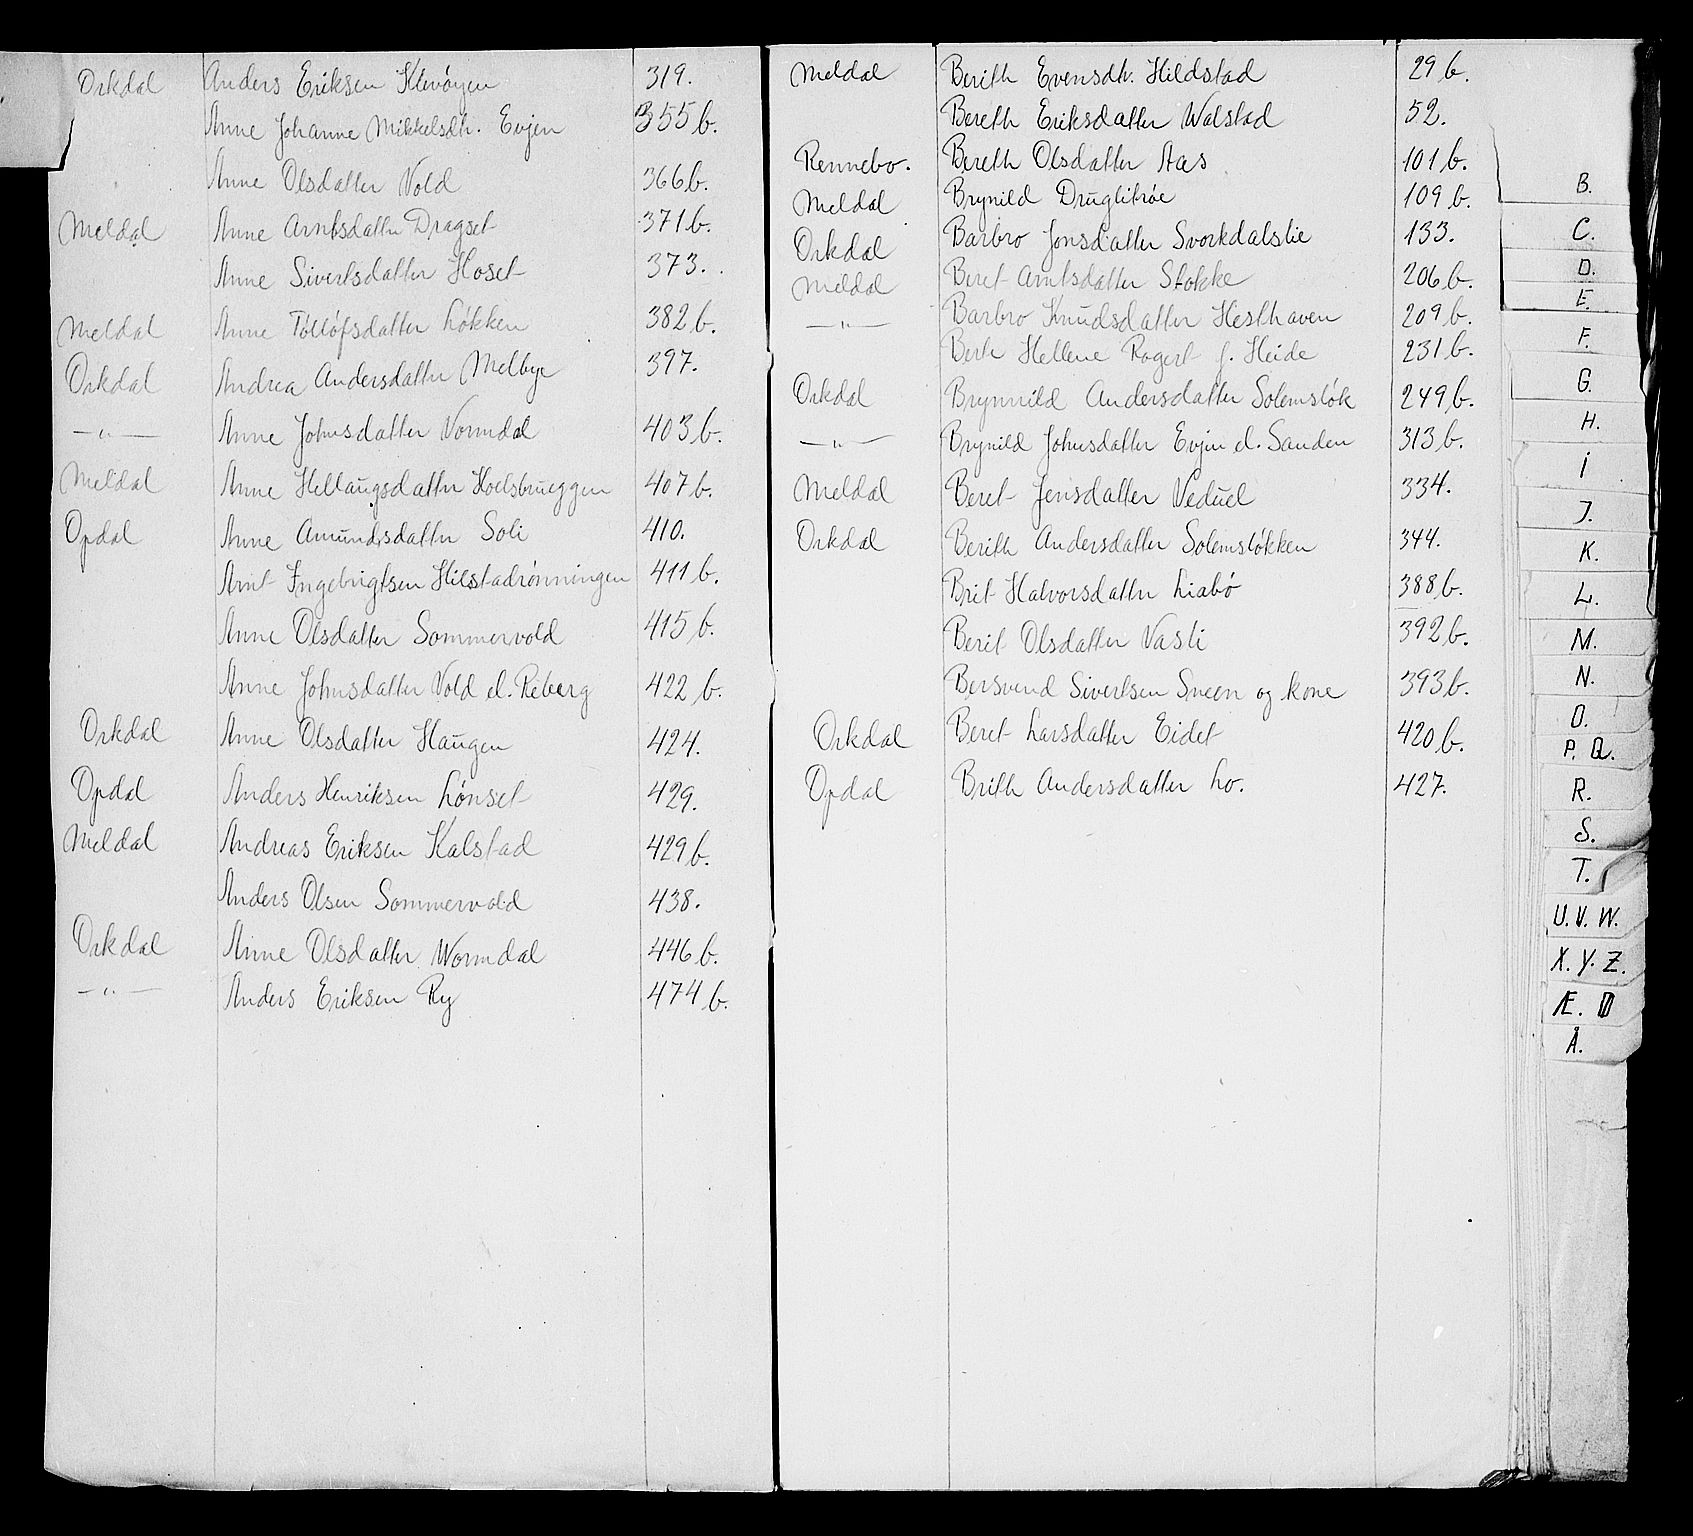 Orkdal Anders Eriksen Klevøyen 319.
Anne Johanne Mikkelsdtr. Evjen 355 b.
Anne Olsdatter Vold 366 b.
Meldal Anne Arntsdatter Dragset 371 b.
Anne Sivertsdatter Hoset 373.
Meldal Anne Tølløfsdatter Løkken 382 b.
Orkdal Andrea Andersdatter Melbye 397.
—„— Anne Johnsdatter Vormdal 403 b.
Meldal Anne Hellaugsdatter Hoelsbrueggen 407 b.
Opdal Anne Amundsdatter Soli 410.
Arnt Ingebrigtsen Hilstadrønningen 411 b.
Anne Olsdatter Sommervold 415 b.
Anne Johnsdatter Vold el. Reberg 422 b.
Orkdal Anne Olsdatter Haugen 424.
Opdal Anders Henriksen Lønset 429.
Meldal Andreas Eriksen Kalstad 429 b.
Anders Olsen Sommervold 438.
Orkdal Anne Olsdatter Wormdal 446 b.
—„— Anders Eriksen Ry 474 b.
Meldal Berith Evensdtr. Hildstad 29 b.
Bereth Eriksdatter Walstad 52.
Rennebo. Bereth Olsdatter Aas 101 b.
Meldal Brynild Druglitrøe 109 b.
Orkdal Barbro Jonsdatter Svorkdalslie 133.
Meldal Beret Arntsdatter Stokke 206 b.
—„— Barbro Knudsdatter Hesthaven 209 b.
Berte Hellene Rogert f. Heide 231 b.
Orkdal Brynnild Andersdatter Solemsløk 249 b.
—„— Brynild Johnsdatter Evjen el. Sanden 313 b.
Meldal Beret Jensdatter Veduel 334.
Orkdal Berith Andersdatter Solemsløkken 344.
Brit Halvorsdatter Liabø 388 b.
Berit Olsdatter Vasli 392 b.
Bersvend Sivertsen Sneen og kone 393 b.
Orkdal Beret Larsdatter Eidet 420 b.
Opdal Brith Andersdatter Lo. 427.
B.
C.
D.
E.
F.
G.
H.
I
J.
K.
L.
M.
N.
O.
P. Q.
R.
S.
T.
U. V. W.
X. Y. Z.
Æ. Ø
Å.